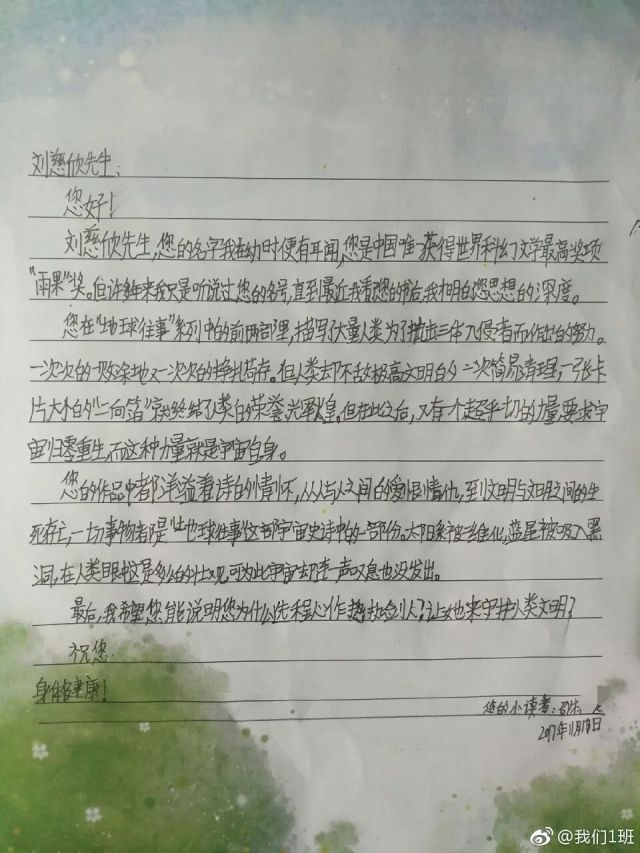 刘慈欣先生:
您好!
刘慈欣先生,您的名字我在幼时便有耳闻,您是中国唯一获得世界科幻文学最高奖项
"雨果"奖。但许多年来我只是听说过您的名号,直到最近我看您的书后,我才明白您思想的深度。
您在"地球往事"系列中的前两部里,描写了大量人类为了抵抗三体入侵者而作出的努力。
一次次的一败涂地又一次次的挣扎苟存。但人类却不敌极高文明的一次简易清理,一张卡
片大小的"二向箔"就终结了人类的荣誉光辉煌。但在此之后,又有一个超乎一切的力量要求宇
宙归零重生,而这种力量就是宇宙自身。
您的作品中都洋溢着诗的情怀,从人与人之间的爱恨情仇,到文明与文明之间的生
死存亡,一切事物都是"地球往事"这部宇宙史诗中的一部份。太阳系被二维化,蓝星被吸入黑
洞,在人类眼中这是多么的壮观,可为此宇宙却连一声叹息也没发出。
最后,我希望您能说明您为什么选程心作为执剑人?让她来守护人类文明?
祝您
身体健康!
您的小读者:
2017年11月18日
@我们1班